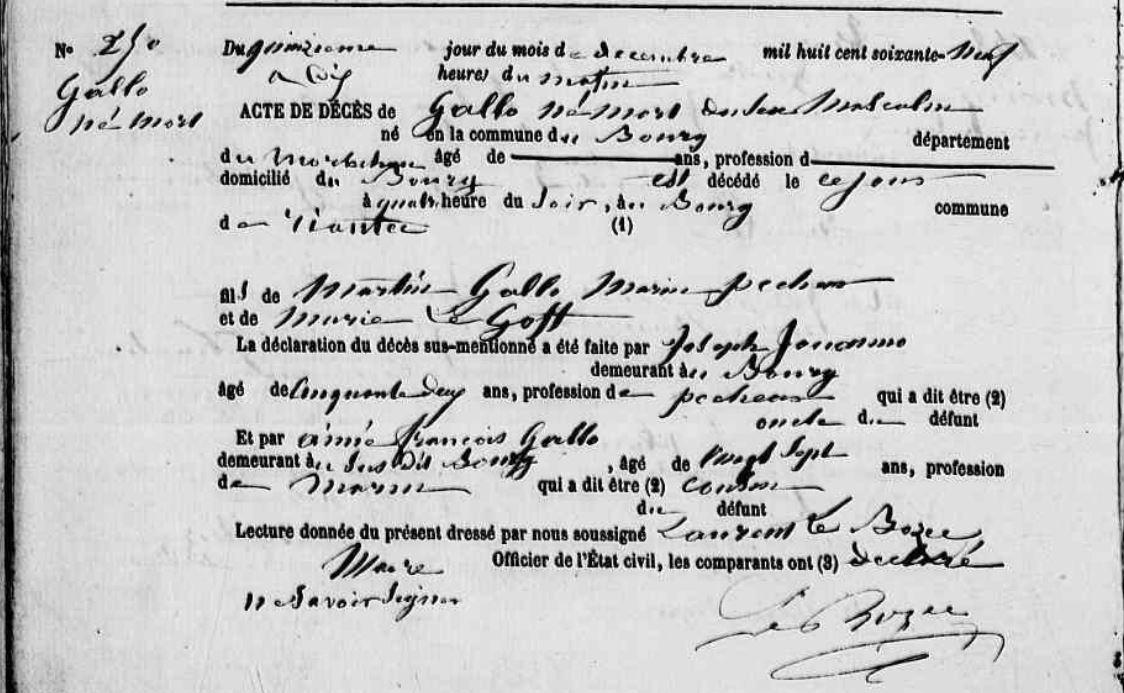 N°
Gallo
né mort
Du quinzieme jour du mois de decembre mil huit cent soixante-neuf
a dix heures du matin
ACTE DE DÉCÈS de Gallo né mort du sexe Masculin
né en la commune du Bourg département
du Morbihan âgé de ans, profession d
domicilié du Bourg est décédé le ce jour
à quatre heure du Soir, au Bourg commune
de (1)
fils de Martin Gallo Marin pecheur
et de Marie Le Goff
La déclaration du décès sus-mentionné a été faite par Joseph
demeurant au Bourg
âgé de Cinquante deux ans, profession de pecheur qui a dit être (2)
oncle du défunt
Et par aimé françois Gallo
demeurant au Sus Dit Bourg, âgé de vingt Sept ans, profession
de Marin qui a dit être (2) cousin
du défunt
Lecture donnée du présent dressé par nous soussigné Laurent Le
Maire Officier de l'État civil, les comparants ont (3) declaré
ne Savoir Signer